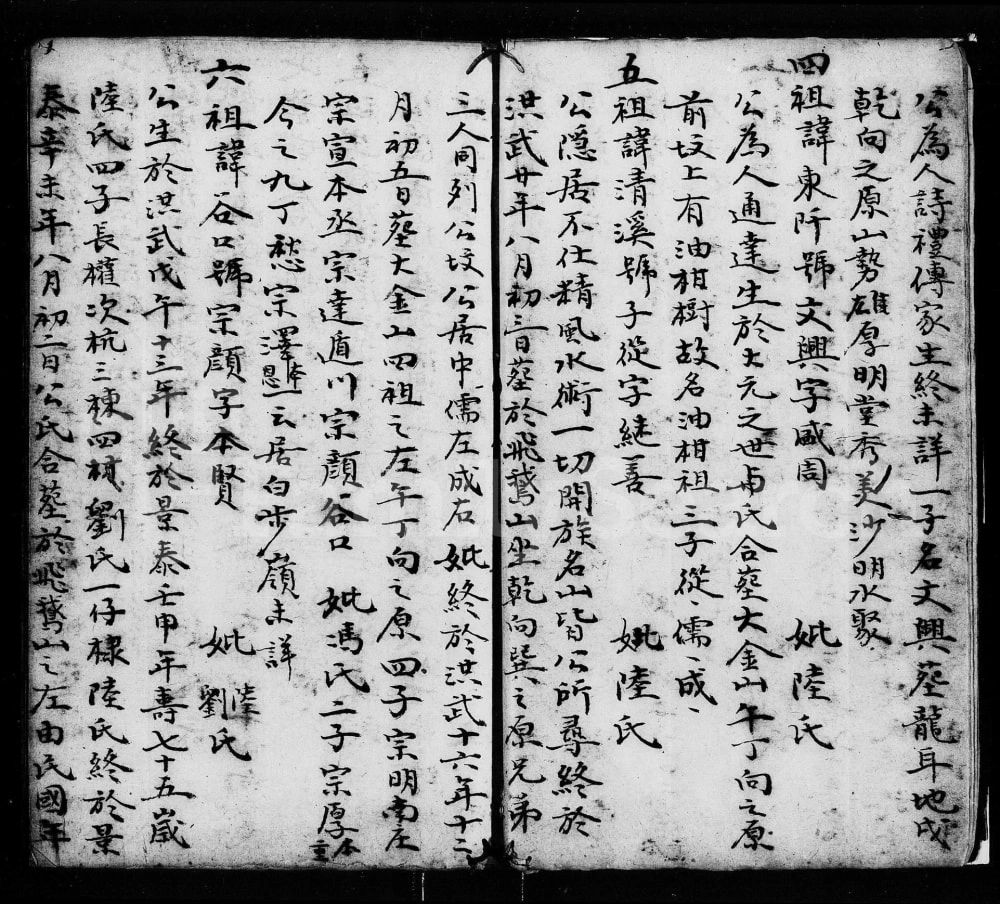 公為人詩禮傳家生終未詳一子名文興葬龍耳地戌
乾向之原山勢雄厚明堂秀美沙明水聚
四祖諱東阡號文興字咸周 妣陸氏
公為人通達生於大元之世與氏合葬大金山午丁向之原
前坟上有油柑樹故名油柑祖三子從、儒、成、
五祖諱清溪號子從字継善 妣陸氏
公隱居不仕精風水術一切開族名山皆公所尋終於
洪武廿年八月初三日葬於飛鵝山坐乾向巽之原兄弟
三人同列公坟公居中儒左成右 妣終於洪武十六年十二
月初五日葬大金山四祖之左午丁向之原四子宗明南庄
宗宣本丞宗達遁川宗顏谷口 妣馮氏二子宗厚本重
今之九丁愁宗澤本恩一云居白步嶺未詳
六祖諱谷口號宗顏字本賢 妣陸劉氏
公生於洪武戊午十三年終於景泰壬申年壽七十五歲
陸氏四子長權次杭三棟四楨劉氏一仔棣陸氏終於景
泰辛未年八月初二日公氏合葬於飛鵝山之左由民國年